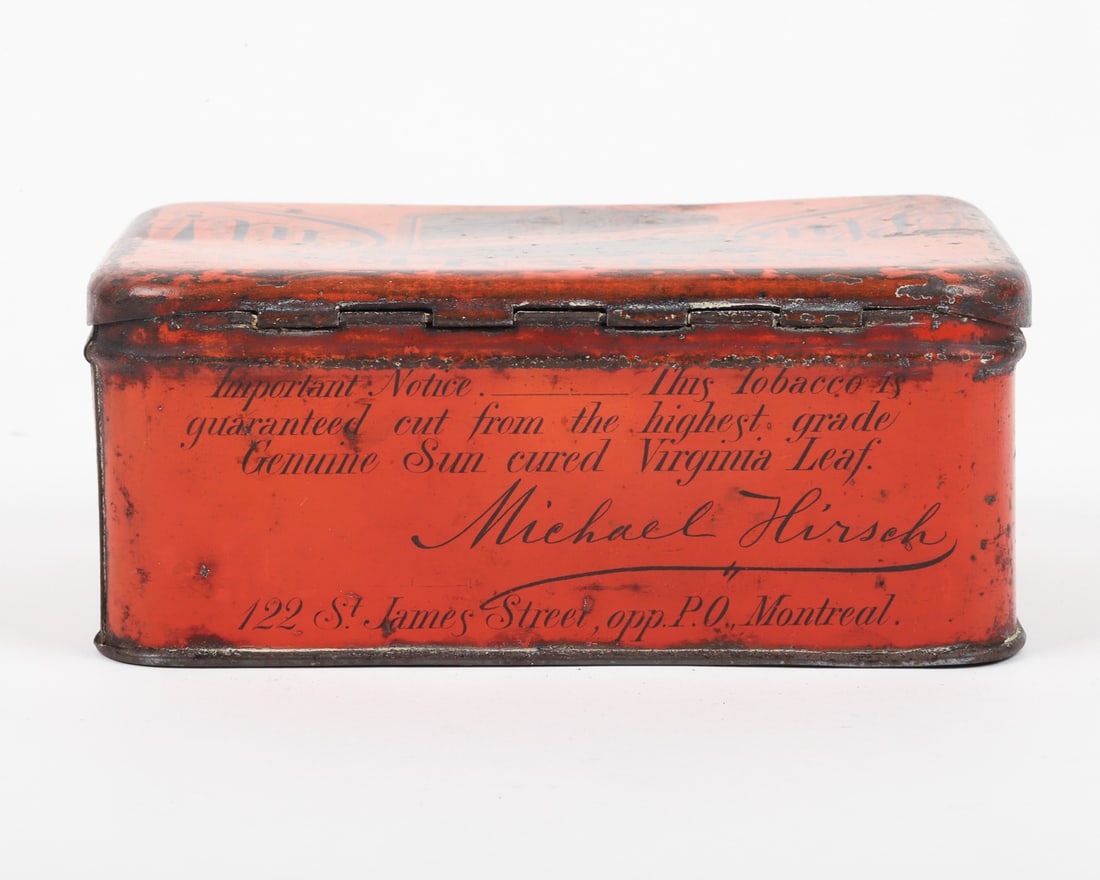 Important Notice. ———— This Tobacco is
guaranteed cut from the highest grade
Genuine Sun cured Virginia Leaf.
Michael Hirsch
122 St. James Street, opp. P.O., Montreal.